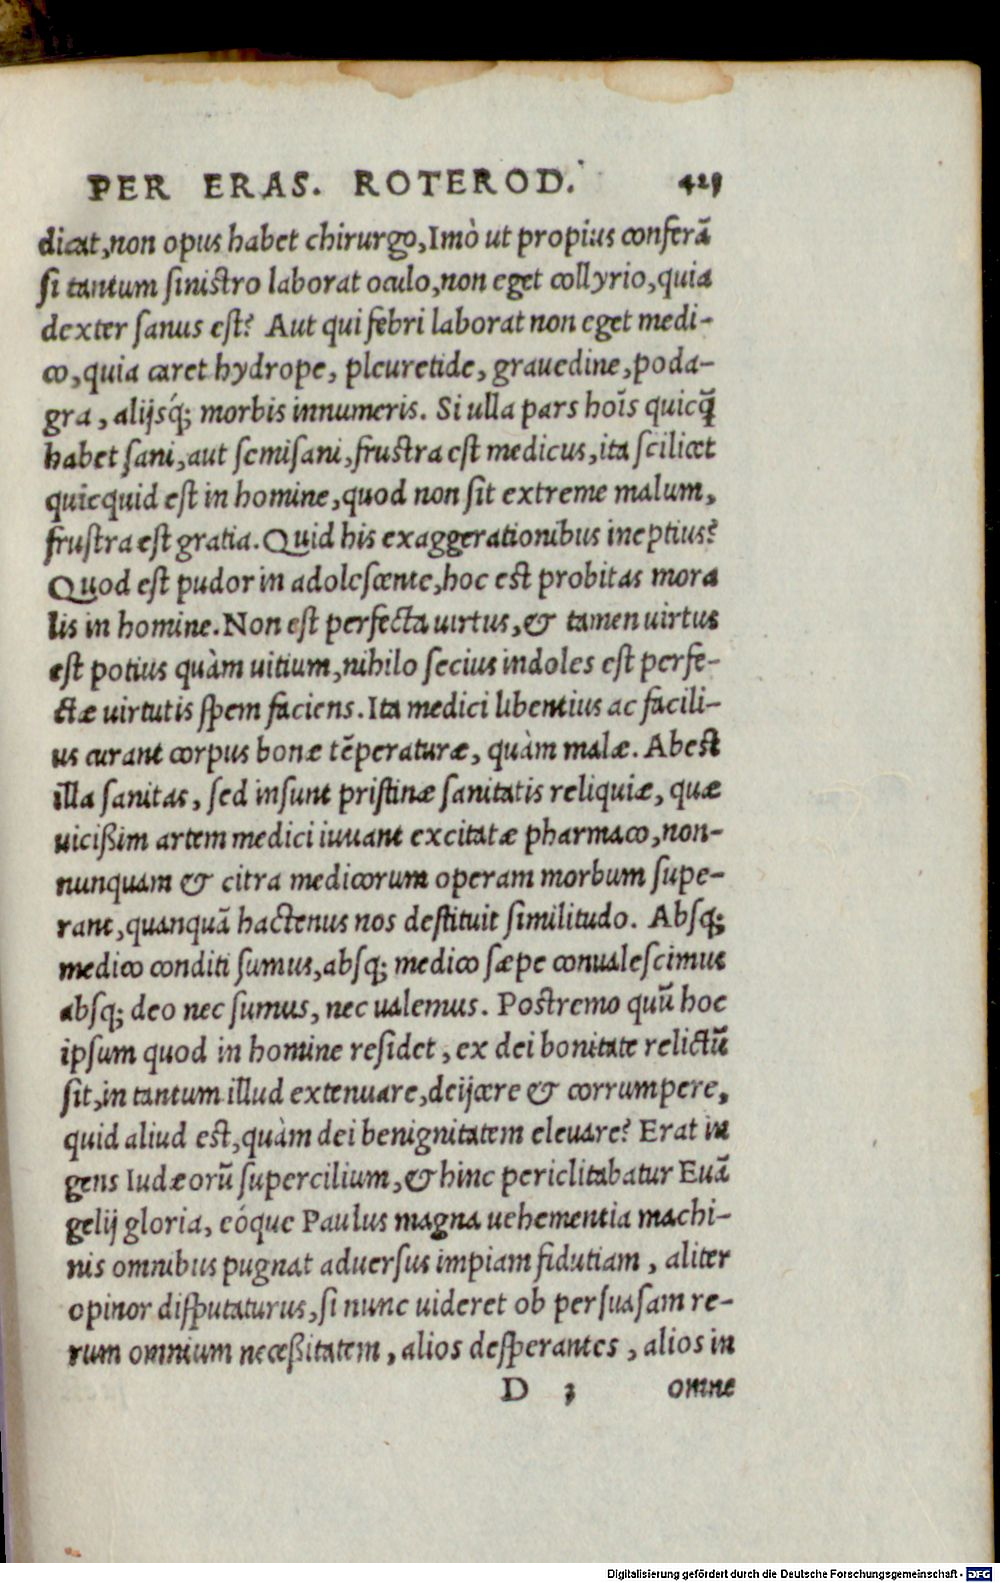 PER ERAS. ROTEROD. 429
dicat, non opus habet chirurgo, Imò ut propius conferā
si tantum sinistro laborat oculo, non eget collyrio, quia
dexter sanus est? Aut qui febri laborat non eget medi-
co, quia caret hydrope, pleuretide, grauedine, poda-
gra, alijsq́; morbis innumeris. Si ulla pars hoīs quicq̄
habet sani, aut semisani, frustra est medicus, ita scilicet
quicquid est in homine, quod non sit extreme malum,
frustra est gratia. Quid his exaggerationibus ineptius?
Quod est pudor in adolescente, hoc est probitas mora
lis in homine. Non est perfecta uirtus, & tamen uirtus
est potius quàm uitium, nihilo secius indoles est perfe-
ctæ uirtutis spem faciens. Ita medici libentius ac facili-
us curant corpus bonæ tēperaturæ, quàm malæ. Abest
illa sanitas, sed insunt pristinæ sanitatis reliquiæ, quæ
uicißim artem medici iuuant excitatæ pharmaco, non-
nunquam & citra medicorum operam morbum supe-
rant, quanquā hactenus nos destituit similitudo. Absq;
medico conditi sumus, absq; medico sæpe conualescimus
absq; deo nec sumus, nec ualemus. Postremo quū hoc
ipsum quod in homine residet, ex dei bonitate relictū
sit, in tantum illud extenuare, deijcere & corrumpere,
quid aliud est, quàm dei benignitatem eleuare? Erat in
gens Iudæorū supercilium, & hinc periclitabatur Euā
gelij gloria, eóque Paulus magna uehementia machi-
nis omnibus pugnat aduersus impiam fidutiam, aliter
opinor disputaturus, si nunc uideret ob persuasam re-
rum omnium neceßitatem, alios desperantes, alios in
D 3 omne
Digitalisierung gefördert durch die Deutsche Forschungsgemeinschaft - DFG